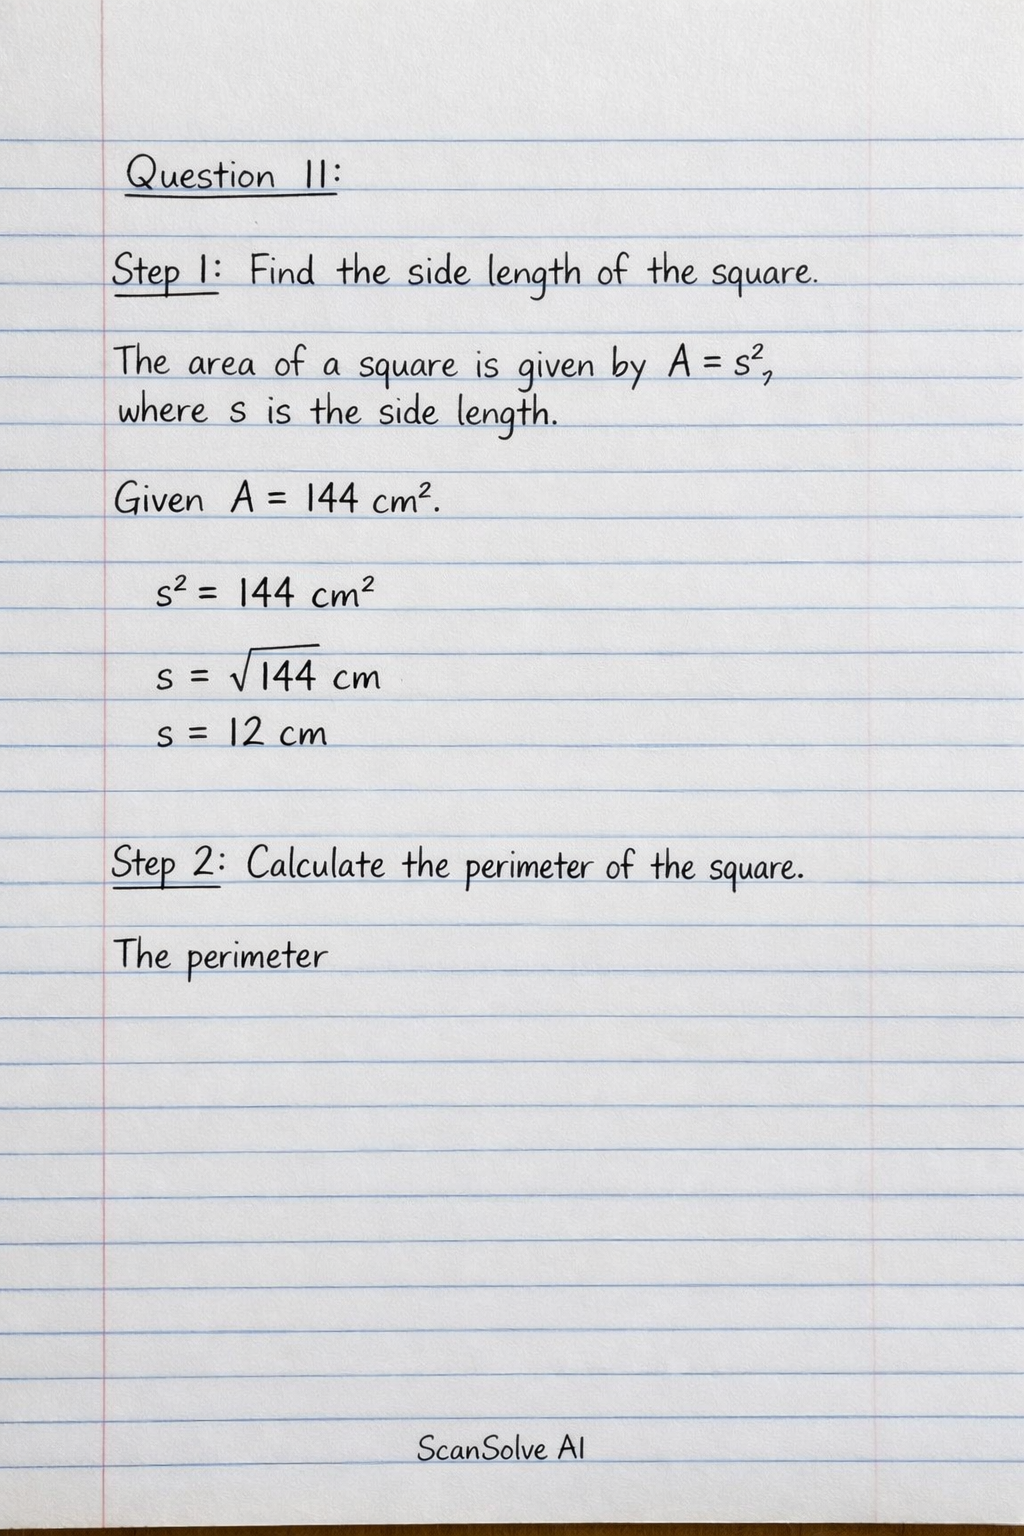 Question 11:
Step 1: Find the side length of the square.
The area of a square is given by A = s²,
where s is the side length.
Given A = 144 cm².
s² = 144 cm²
s = √144 cm
s = 12 cm
Step 2: Calculate the perimeter of the square.
The perimeter
ScanSolve AI